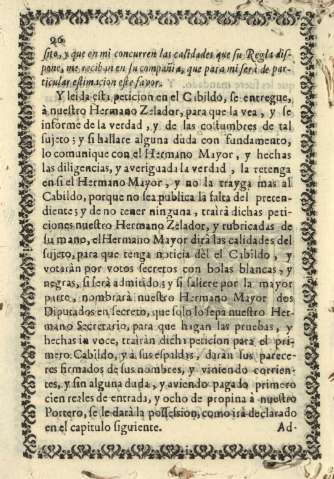 26
sito, y que en mi concurren las calidades que su Regla dis-
pone, me reciban en su compañia, que para mi será de par-
ticular estimacion este favor.
Y leida esta peticion en el Cibildo, se entregue,
à nuestro Hermano Zelador, para que la vea, y se
informe de la verdad, y de las costumbres de tal
sujeto; y si hallare alguna duda con fundamento,
lo comunique con el Hermano Mayor, y hechas
las diligencias, y averiguada la verdad, la retenga
en si el Hermano Mayor, y no la trayga mas al
Cabildo, porque no sea publica la falta del preten-
diente; y de no tener ninguna, trairà dichas peti-
ciones nuestro Hermano Zelador, y rubricadas de
su mano, el Hermano Mayor dirà las calidades del
sujeto, para que tenga noticia dèl el Cibildo, y
votaràn por votos secretos con bolas blancas, y
negras, si serà admitido; y si saliere por la mayor
parte, nombrarà nuestro Hermano Mayor dos
Diputados en secreto, que solo lo sepa nuestro Her-
mano Secretario, para que hagan las pruebas, y
hechas in voce, trairàn dicha peticion para el pri-
mero Cabildo, y à sus espaldas, daràn sus parece-
res firmados de sus nombres, y viniendo corrien-
tes, y sin alguna duda, y aviendo pagado primero
cien reales de entrada, y ocho de propina à nuestro
Portero, se le darà la possession, como irà declarado
en el capitulo siguiente.
Ad-